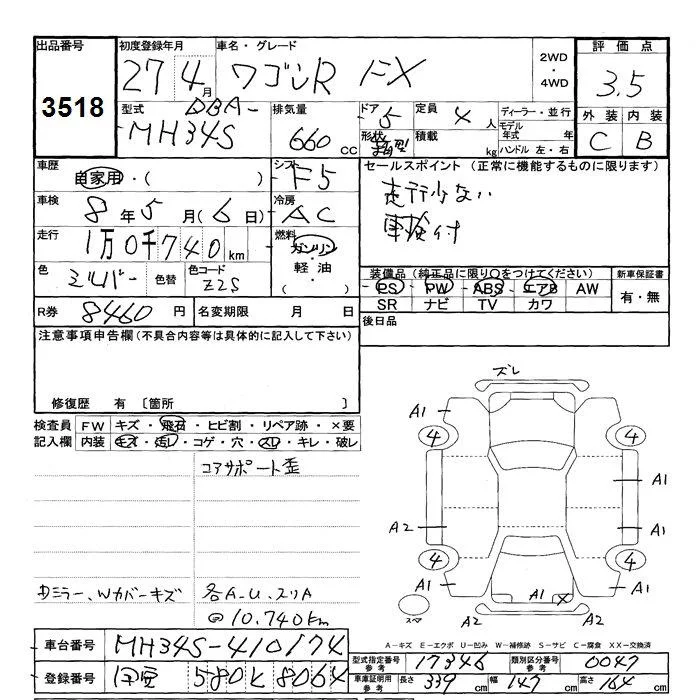 出品番号 3518
初度登録年月 27 4月
車名・グレード ワゴンR FX
2WD・4WD
評価点 3.5
外装 C 内装 B
型式 DBA-
MH34S
排気量 660 cc
ドア 5
形状
定員 4 人
積載 kg
ディーラー・並行
モデル年式 年
ハンドル 左・右
車歴 自家用・( )
シフト F5
セールスポイント (正常に機能するものに限ります)
走行少ない
車検付
車検 8年5月(6日)
冷房 AC
走行 1万0千740km
燃料 ガソリン・軽油・( )
色 シルバー 色替 色コード Z2S
装備品 (純正品に限り○をつけてください)
PS PW ABS エアB AW
SR ナビ TV カワ
新車保証書 有・無
R券 8460円 名変期限 月 日
後日品
注意事項申告欄 (不具合内容等は具体的に記入して下さい)
修復歴 有 〔箇所 〕
検査員記入欄
FW キズ・飛石・ヒビ割・リペア跡・×要
内装 キズ・汚レ・コゲ・穴・スレ・キレ・破レ
コアサポート歪
ミラー、Wカバーキズ
各A.U.スリA
@10.740km
ズレ
A1
4 4
A1
A2 A1
4 4
A1 A1 X A1
A2 A2
A-キズ E-エクボ U-凹み W-補修跡 S-サビ C-腐食 XX-交換済
車台番号 MH34S-410174
登録番号 伊豆 580 く 8064
型式指定番号 参考 17346 類別区分番号 参考 0047
車庫証明用 参考 長さ 339cm 幅 147cm 高さ 164cm